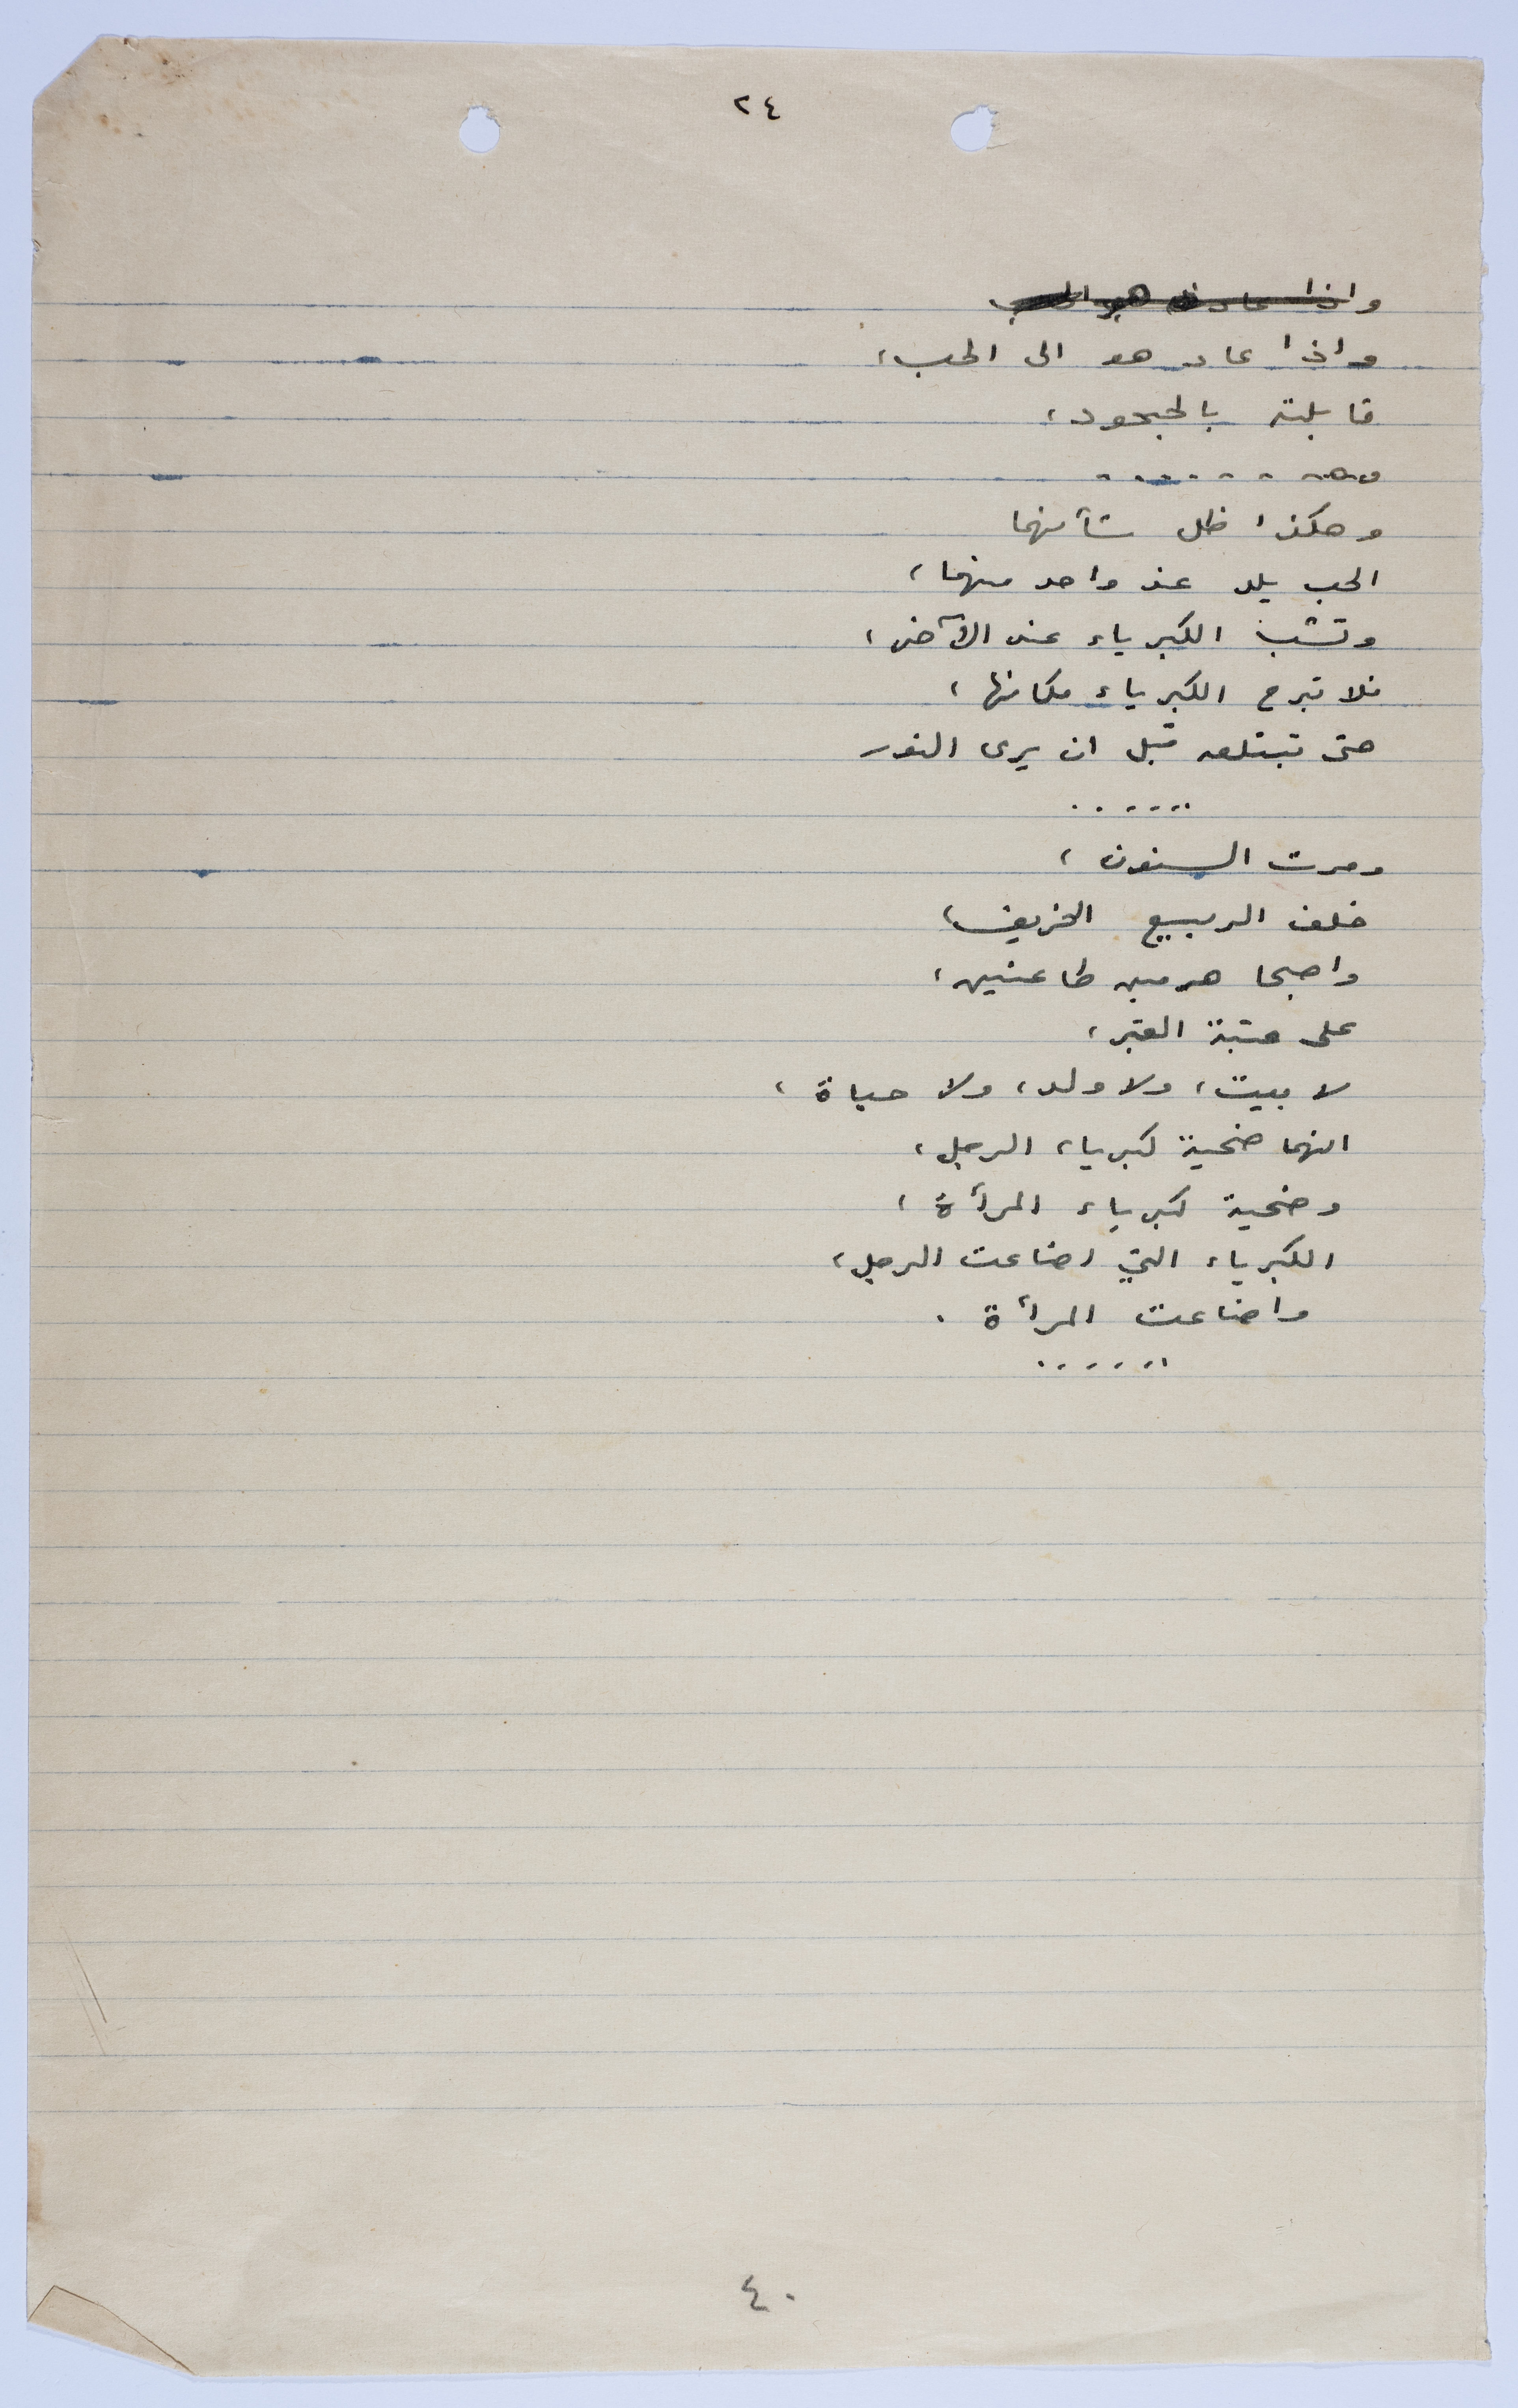 ٢٤
واذا عاد هو الى الحب
واذا عاد هو الى الحب،
قابلته بالجحود،
. . . . . .
وهكذا ظل شأنهما
الحب يلد عند واحد منهما،
وتشب الكبرياء عند الآخر،
فلا تبرح الكبرياء مكانها،
حتى تبتلعه قبل ان يرى النور
. . . . . .
ومرت السنون،
خلف الربيع الخريف،
واصبحا هرمين طاعنين،
على عتبة القبر،
لا بيت، ولا ولد، ولا حياة،
انهما ضحية كبرياء الرجل،
وضحية كبرياء المرأة،
الكبرياء التي اضاعت الرجل،
واضاعت المرأة .
. . . . . .
٤٠